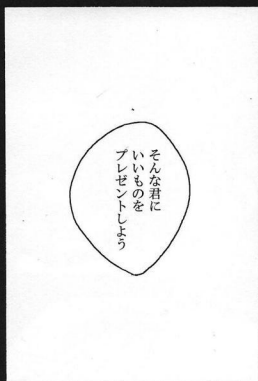 そんな君に
いいものを
プレゼントしよう